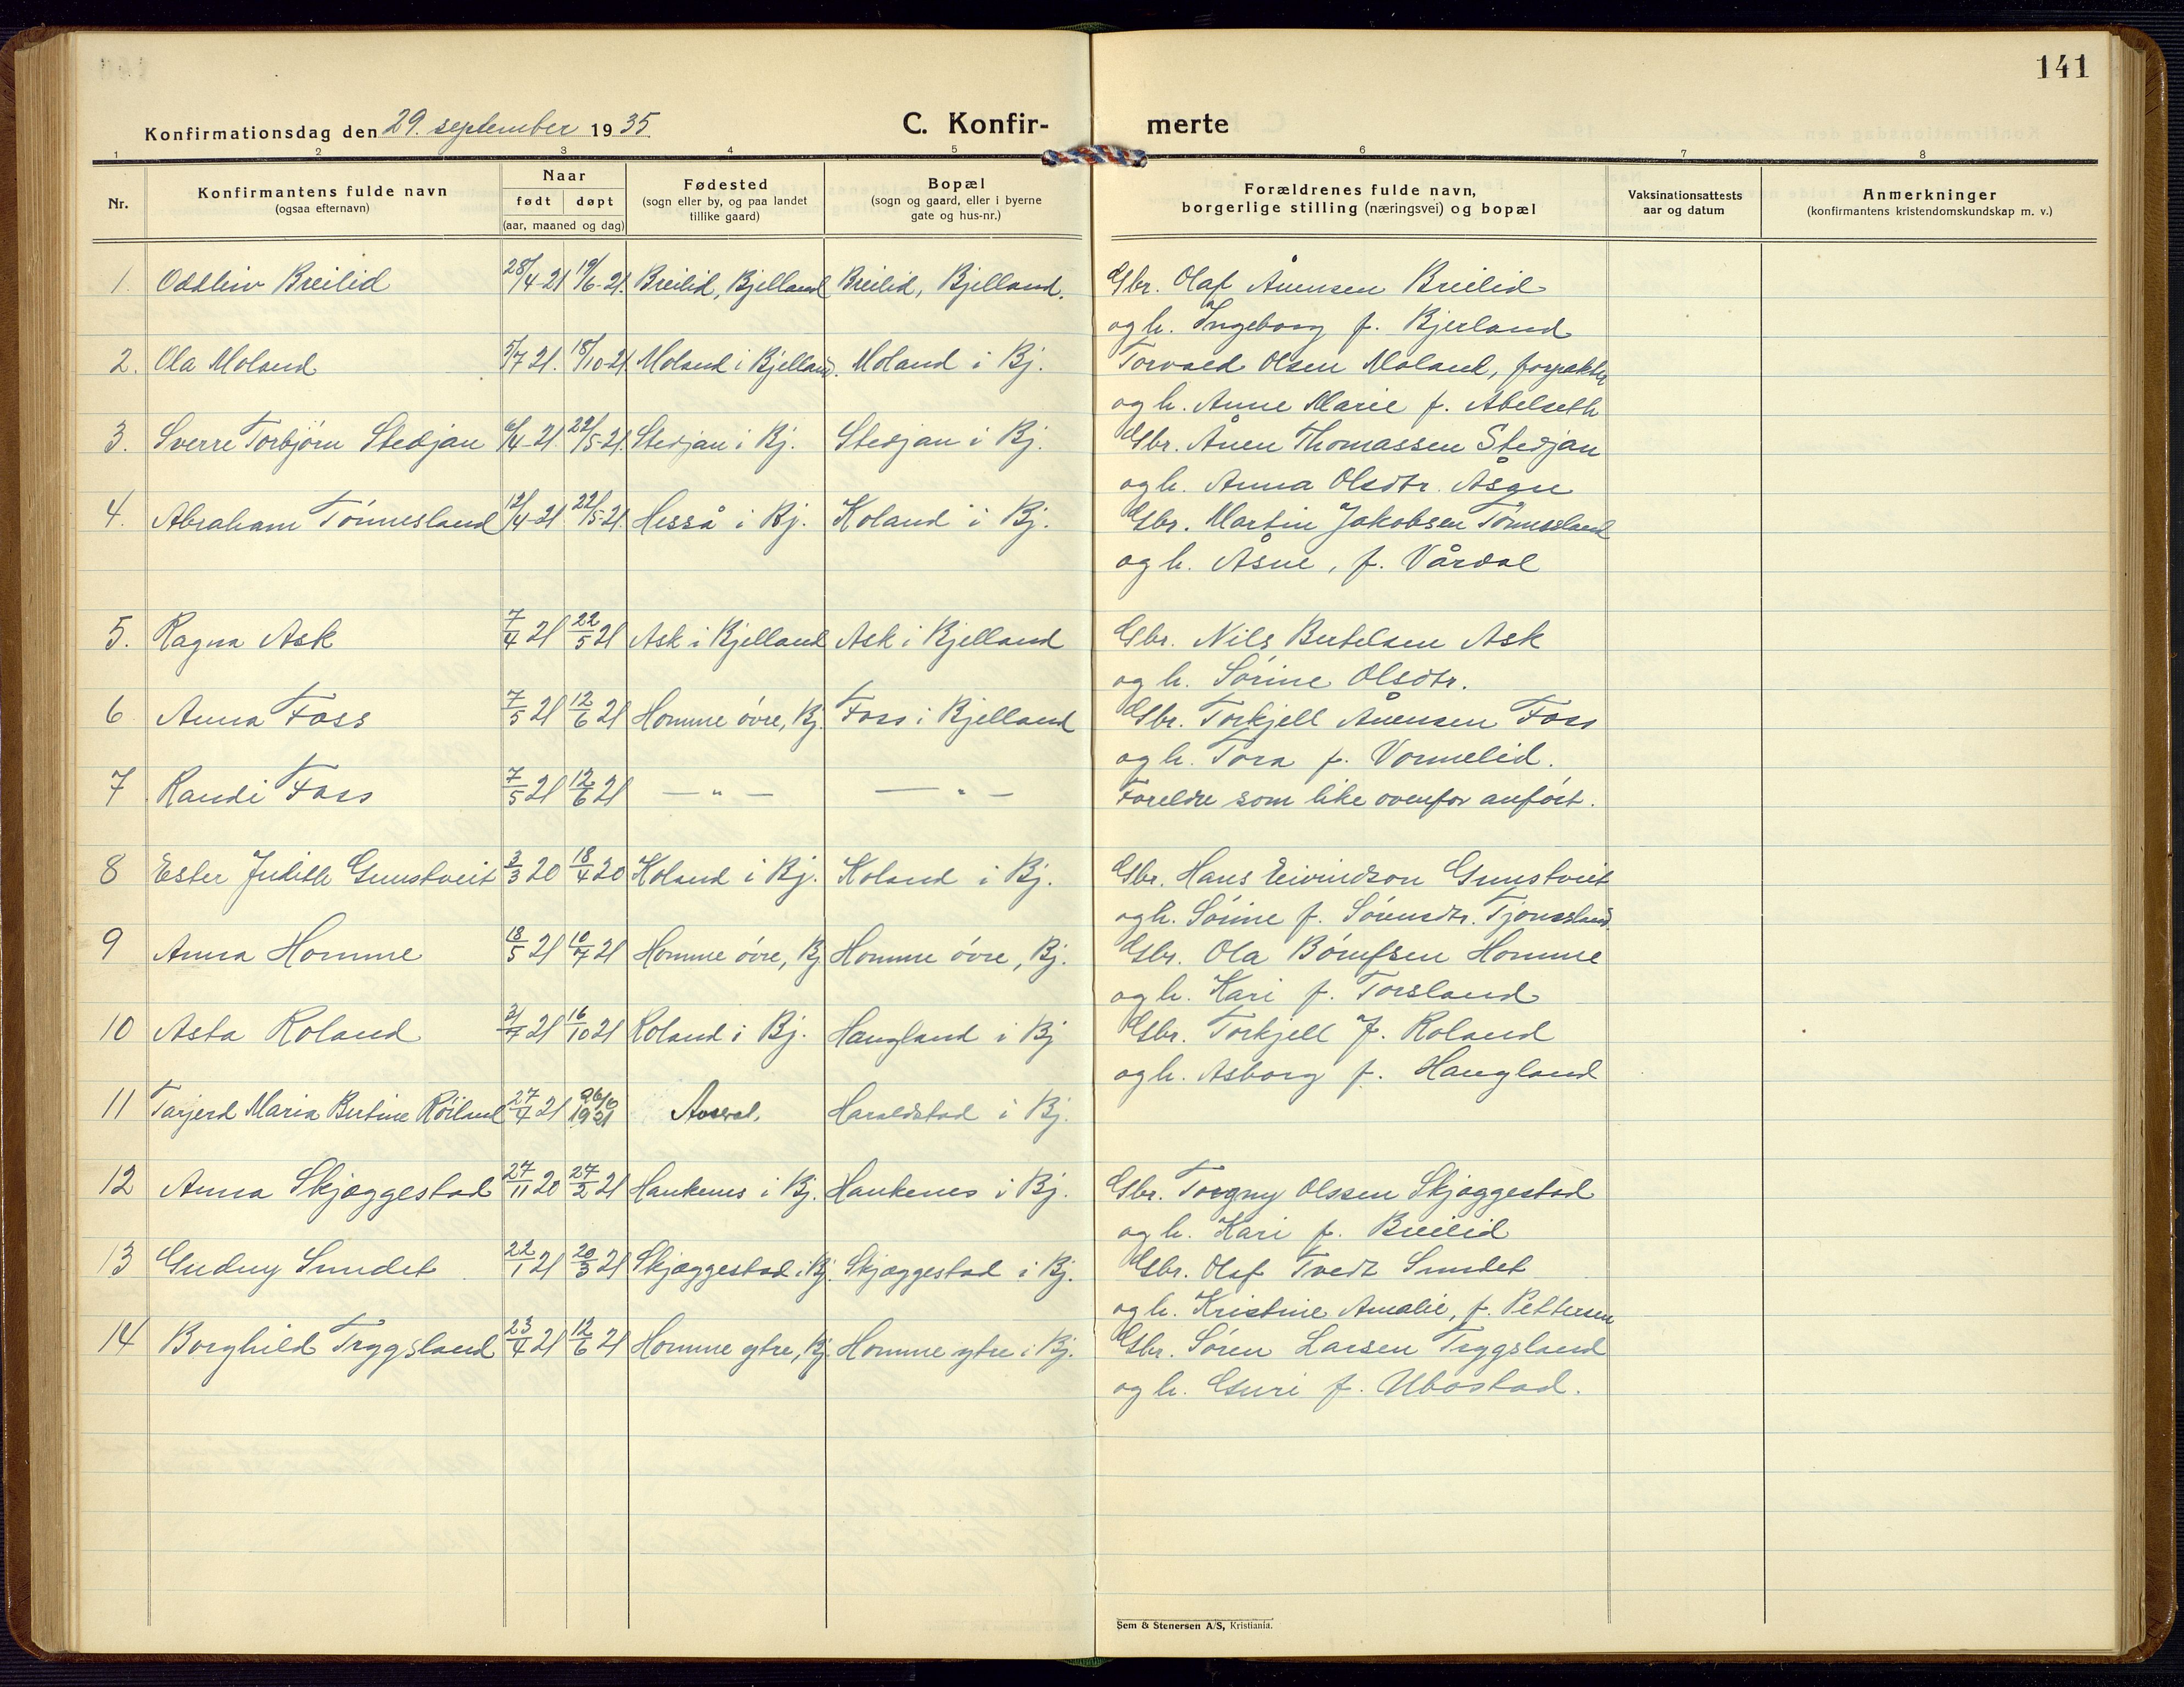 141
Konfirmationsdag den 29. september 1935.
C. Konfir-
merte
1 2 3 4 5 6 7 8
Nr.
Konfirmantens fulde navn
(ogsaa efternavn)
Naar
født døpt
(aar, maaned og dag)
Fødested
(sogn eller by, og paa landet
tillike gaard)
Bopæl
(sogn og gaard, eller i byerne
gate og hus-nr.)
Forældrenes fulde navn,
borgerlige stilling (næringsvei) og bopæl
Vaksinationsattests
aar og datum
Anmerkninger
(konfirmantens kristendomskundskap m. v.)
1. Oddleiv Breilid 28/4-21 19/6-21. Breilid, Bjelland Breilid, Bjelland. Gbr. Olaf Ånensen Breilid
og h. Ingeborg f. Bjerland
2. Ola Moland 5/7 21. 18/10-21. Moland i Bjelland. Moland i Bj. Torvald Olsen Moland, forpakter
og h. Anne Marie f. Abelseth
3. Sverre Torbjørn Stedjan 6/4-21. 22/5-21. Stedjan i Bj. Stedjan i Bj. Gbr. Ånen Thomassen Stedjan
og h. Anna Olsdtr.
4. Abraham Tønnesland 12/4-21 22/5-21. Hesså i Bj. Koland i Bj. Gbr. Martin Jakobsen Tønnesland
og h. Åsne, f. Vårdal
5. Ragna Ask 7/4 21 22/5 21 Ask i Bjelland Ask i Bjelland Gbr. Nils Bertelsen Ask
og h. Sørine Olsdtr.
6 Anna Foss 7/5 21 12/6 21 Homme øvre, Bj. Foss i Bjelland Gbr. Torkjell Ånensen Foss
og h. Tora f. Vormelid.
7 Randi Foss 7/5 21 12/6 21 — " — — " — Foreldre som like ovenfor anført.
8 Ester Judith Gunstveit 3/3 20 18/4 20 Koland i Bj. Koland i Bj. Gbr. Hans Eivindson Gunstveit
og h. Sørine f. Sørensdtr. Tjomsland.
9 Anna Homme 18/5 21 10/7 21 Homme øvre, Bj Homme øvre, Bj. Gbr. Ola Homme
og h. Kari f. Torsland
10 Asta Roland 21 16/10 21 Roland i Bj. Haugland i Bj Gbr. Torkjell J. Roland
og h. Asborg f. Haugland
11 Tarjerd Maria Bertine Røiland 27/4 21 1921 Åseral. Haraldstad i Bj.
12 Anna Skjæggestad 27/11 20 27/2 21 Haukenes i Bj. Haukenes i Bj. Gbr. Torgny Olssen Skjæggestad
og h. Kari f. Breilid
13 Gudny Sundet 22/1 21 20/3 21 Skjæggestad i Bj. Skjæggestad i Bj. Gbr. Olaf Tvedt Sundet
og h. Kristine Amalie, f. Pettersen
14 Borghild Trygsland 23/4 21 12/6 21 Homme ytre, Bj. Homme ytre i Bj. Gbr. Søren Larsen Trygsland
og h. Guri f. Ubostad.
Sem & Stenersen A/S, Kristiania.